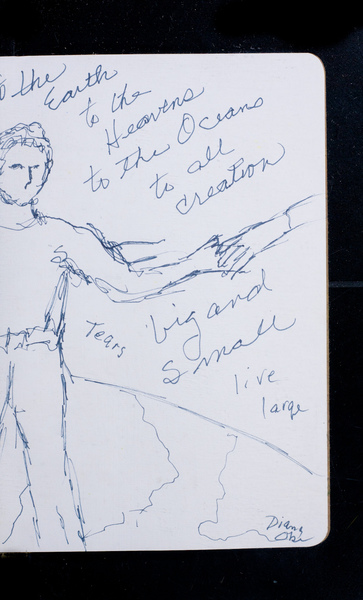 to the
Earth
to the
Heavens
to the Oceans
to all
creation
big and
Small
Tears
live
large
Diana